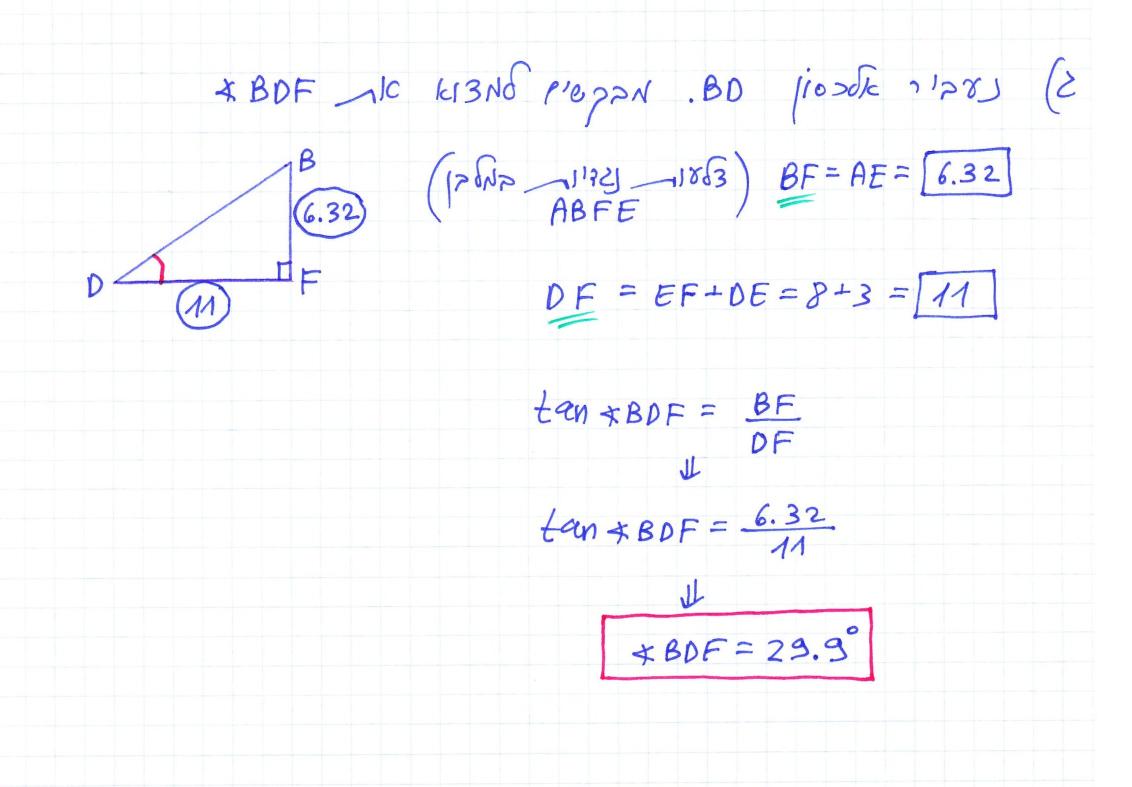 ג) נעביר אלכסון BD. מבקשים למצוא את ∢BDF
BF = AE = 6.32 (צלעות נגדיות במלבן ABFE)
B
6.32
D
F
11
DF = EF + DE = 8 + 3 = 11
tan ∢BDF = BF/DF
⇓
tan ∢BDF = 6.32/11
⇓
∢BDF = 29.9°